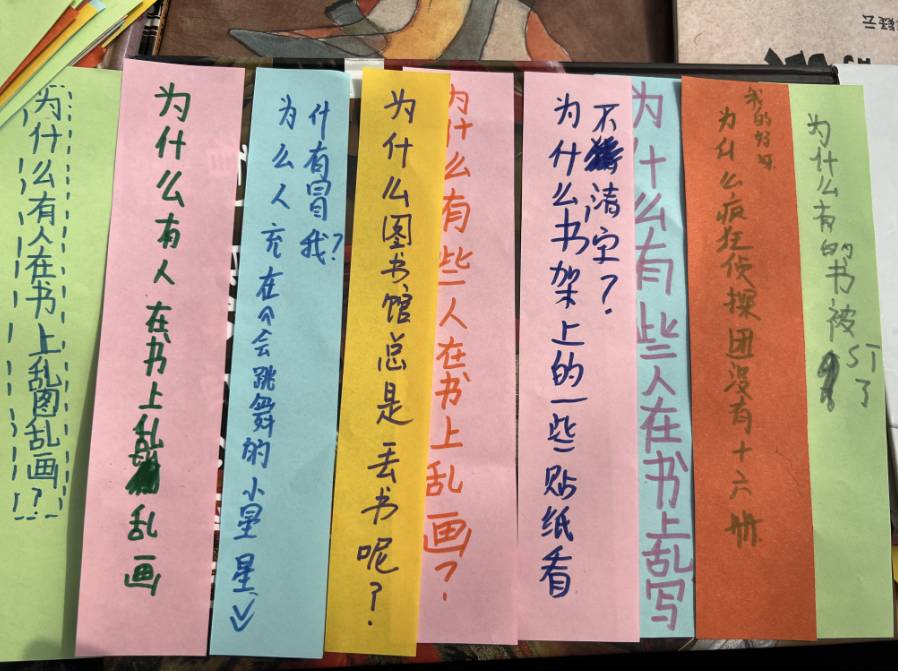 为什么有人在书上乱图乱画?
为什么有人在书上乱乱画
为什么有人冒充我?
在个会跳舞的小星星
为什么图书馆总是丢书呢?
为什么有些人在书上乱画?
为什么书架上的一些贴纸看
不清字?
为什么有些人在书上乱写
我的好
为什么疯狂侦探团没有十六册
为什么有的书被ST了